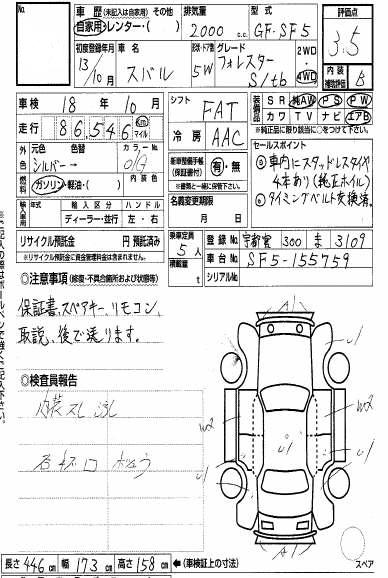 出品No.
車歴 (未記入は自家用) その他
自家用・レンター・( )
排気量
2000 c.c.
型式
GF-SF5
評価点
3.5
初度登録年月
13/10月
車名
スバル
ドア・ドア数
5W
グレード
フォレスター
S/tb
2WD
4WD
内装
補助評価
B
車検 18年 10月
走行 86,546 Km マイル
シフト
FAT
冷房
AAC
装備品
SR 純AW PS PW
カワ TV ナビ エアB
※純正品に限り該当に○をつけて下さい。
外色
元色 色替
シルバー→
カラーNo.
01G
内装色
燃料
ガソリン・軽油・( )
新車整備手帳
(保証書付)
有・無
※書類と一緒に
保管して下さい。
セールスポイント
◎車内にスタッドレスタイヤ
4本あり(純正ホイル)
◎タイミングベルト交換済。
輸入車用
年式 輸入区分 ハンドル
ディーラー・並行 左・右
名義変更期限
月 日
リサイクル預託金 円 預託済み
※リサイクル預託金に資金管理料金は含まれません。
乗車定員
5人
積載量
t
登録No. 宇都宮 300 ま 3109
車台No. SF5-155759
シリアルNo.
◎注意事項 (修復・不具合箇所および状態等)
保証書、スペアキー、リモコン、
取説、後で送ります。
◎検査員報告
内装スレ 汚れ
A1
U1
W2
W2
U1
U1
U1
A1
スペア
長さ 446 cm 幅 173 cm 高さ 158 cm ←(車検証上の寸法)